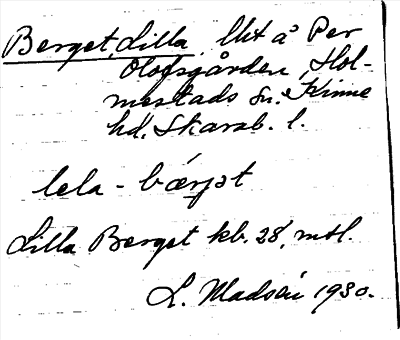 Berget, Lilla, lht å Per
Olofsgården, Hol-
mestads sn. Kinne
hd, Skarab. l.
lela - bærjət
Lilla Berget kb. 28, mtl.
L. Madsén 1930.